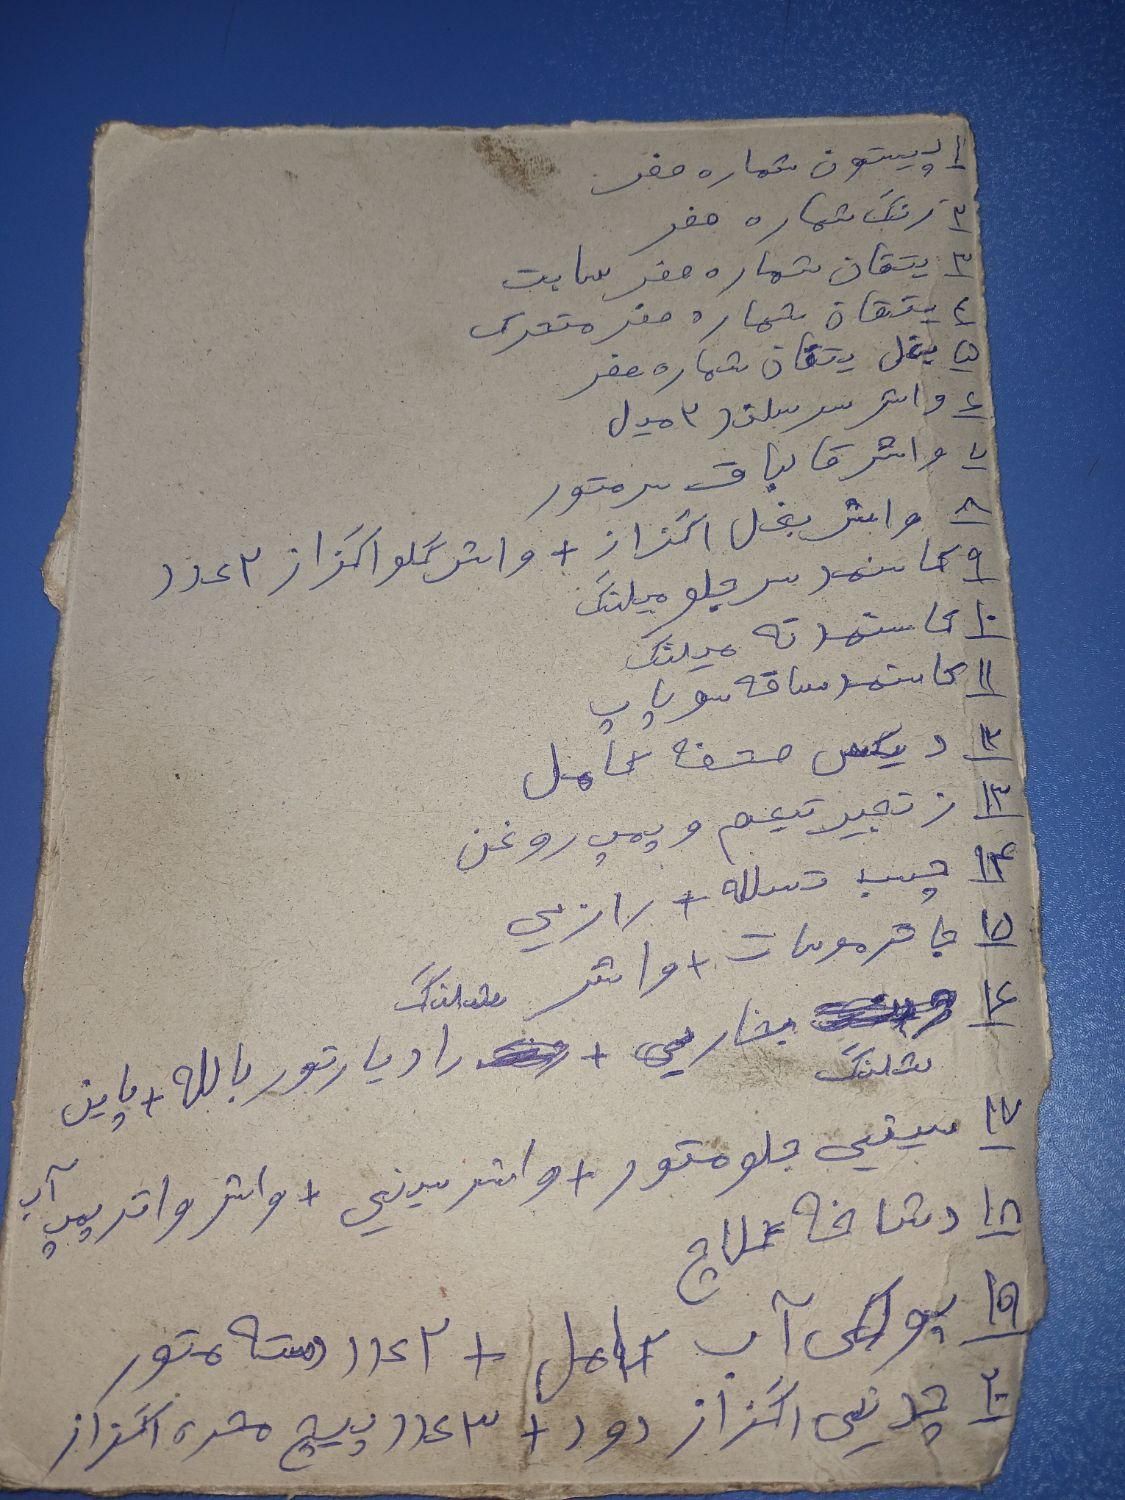 ۱ پیستون شماره صفر
۲ رنگ شماره صفر
۳ یتقان شماره صفر سابت
۴ یتقان شماره صفر متحرک
۵ بغل یتقان شماره صفر
۶ واشر سرسلندر ۳ میل
۷ واشر قالپاق سر متور
۸ واشر بغل اگزاز + واشر گلو اگزاز ۲عدد
۹ کاسنمد سر جلو میلنگ
۱۰ کاسنمد ته میلنگ
۱۱ کاسنمد ساقه سوپاپ
۱۲ دیکس صفحه کامل
۱۳ زنجیر تیم و پمپ روغن
۱۴ چسب + رازیی
۱۵ جا ترموسات + واشر
۱۶ شلنگ بخاریی + شلنگ رادیارتور بالله + پاین
۱۷ سینیی جلو متور + واشر سینیی + واشر واتر پمپ آب
۱۸ دشاخه کلاچ
۱۹ پولکی آب کامل + ۲عدد دسته متور
۲۰ چدنیی اگزاز دود + ۳عدد پیچ مهره اگزاز